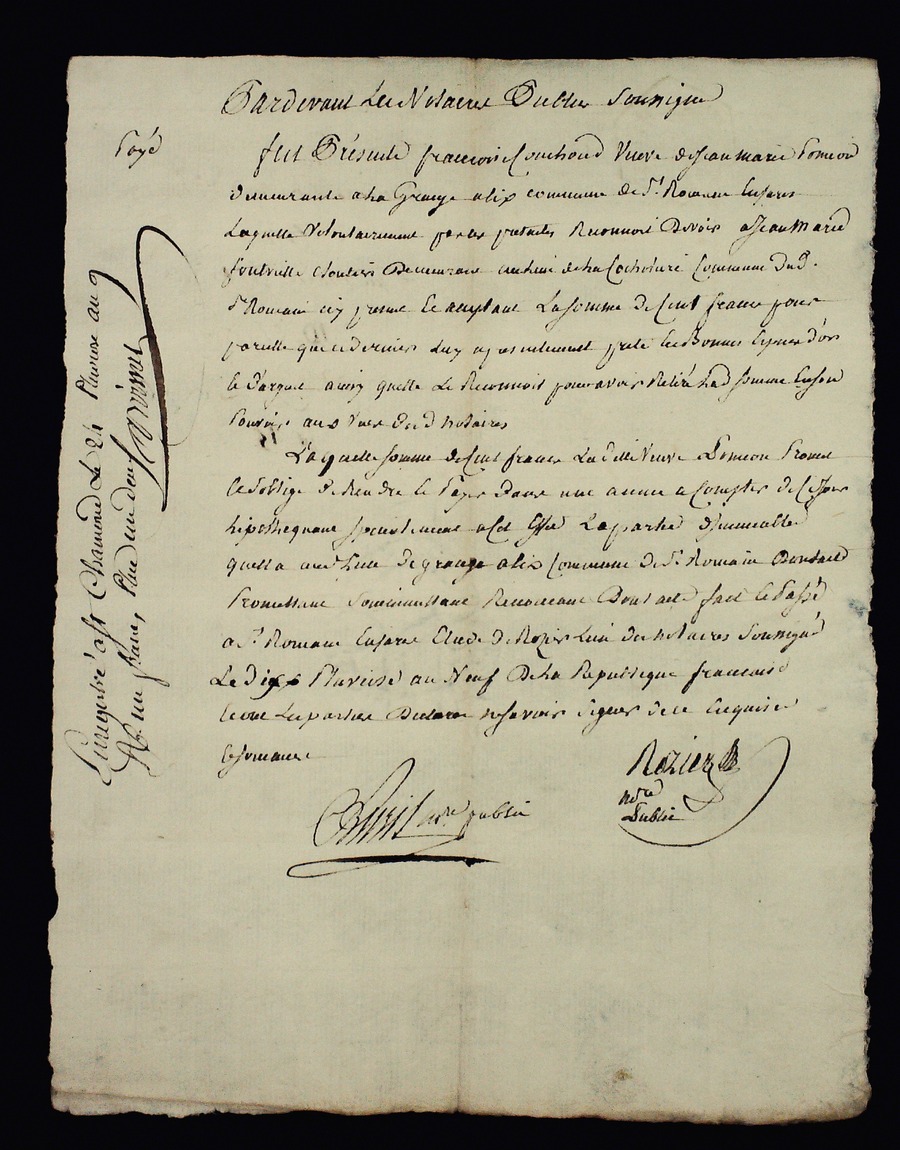 Pardevant Les Notaires Publics Soussignés
Payé
fut Présente francoise Couchoud Veuve de Jean marie Poncon
Demeurante a La Grange alix commune de St. Romain En Jarez
Laquelle Volontairement par ces présentes Reconnoit Devoir a Jean Marie
cloutier Demeurant au lieu de La Commune Dud.
St Romain icy present Et acceptant La somme de Cent francs pour
pareille que ce dernier luy a presentement prêté En Bonnes Espèces d'or
Et D'argent ainsy quelle Le Reconnoit pour avoir Retiré Lad somme En son
Pouvoir aux Vues Dud notaires
Laquelle somme de Cent francs La ditte Veuve Poncon Promet
Et s'oblige de Rendre Et Payer Dans une année a Compter de Ce jour
hipothequant specialement a cet Effet La partie d'immeuble
quelle a aud. Lieu de grange alix Commune de St. Romain Dont acte
Promettant Soumettant Renonçant Dont acte fait Et Passé
a St Romain En Jarez Etude de Rozier Lun des notaires Soussignés
Le Dix Pluviose an Neuf De La Republique francaise
Et ont Les parties Declaré ne savoir Signer de ce Enquises
Et sommées
Rozier
not.re
Public
not.re public
Enregistré a St Chamond Le 24 Pluviose an 9
R. un franc, Plus un dix.e